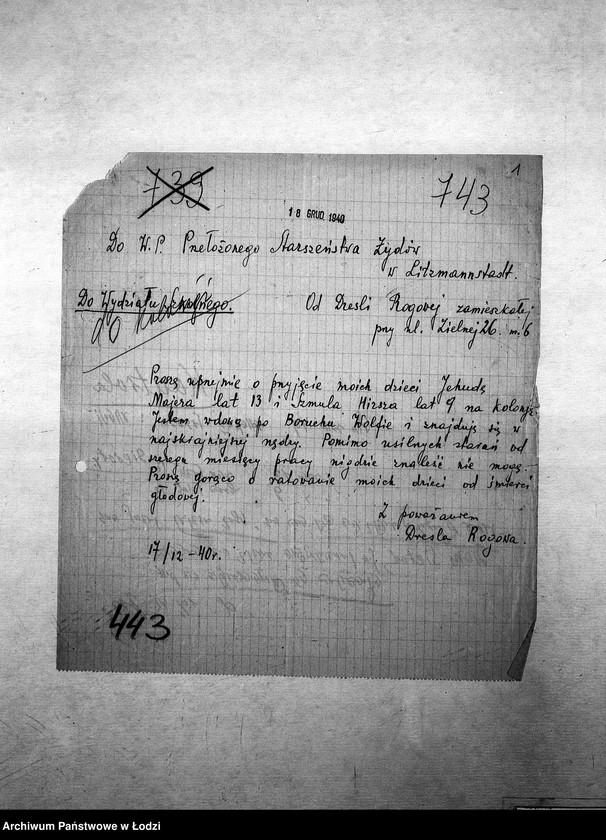 1
739
743
18 GRUD. 1940
Do W. P. Przełożonego Starszeństwa Żydów
w Litzmannstadt.
Do Wydziału Szkolnego.
Od Dresli Rogowej zamieszkałej
przy ul. Zielnej 26. m. 6
Proszę uprzejmie o przyjęcie moich dzieci Jehudę
Majera lat 13 i Szmula Hirsza lat 9 na kolonję.
Jestem wdową po Boruchu Wolfie i znajduję się w
najskrajniejszej nędzy. Pomimo usilnych starań od
szeregu miesięcy pracy nigdzie znaleść nie mogę.
Proszę gorąco o ratowanie moich dzieci od śmierci
głodowej.
Z poważaniem
Dresla Rogowa.
17/12 - 40 r.
443
Archiwum Państwowe w Łodzi